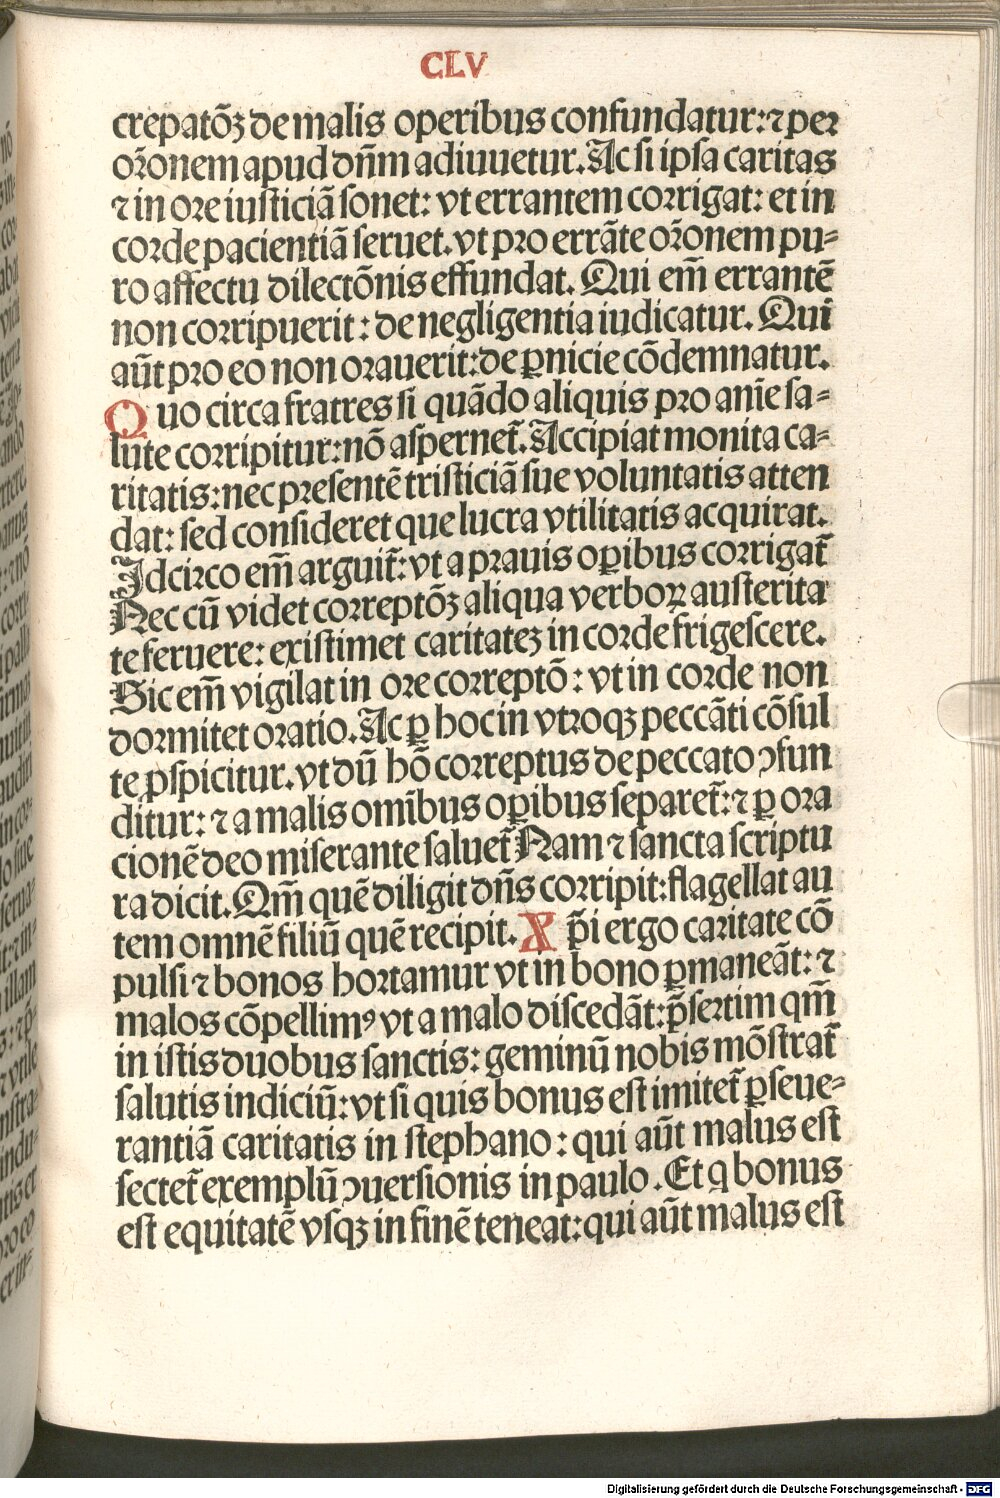 CLV
crepatõꝫ de malis operibus confundatur: ⁊ per
orõnem apud dñm adiuuetur. Ac si ipsa caritas
⁊ in ore iusticiã sonet: vt errantem corrigat: et in
corde pacientiã seruet. vt pro errãte orõnem pu-
ro affectu dilectõnis effundat. Qui em̃ errantẽ
non corripuerit: de negligentia iudicatur. Qui
aũt pro eo non orauerit: de ꝑnicie cõdemnatur.
Quo circa fratres si quãdo aliquis pro anĩe sa-
lute corripitur: nõ aspernet̃. Accipiat monita ca-
ritatis: nec presentẽ tristiciã sue voluntatis atten
dat: sed consideret que lucra vtilitatis acquirat.
Idcirco em̃ arguit̃: vt a prauis oꝑibus corrigat̃
Nec cũ videt correptõꝫ aliqua verboꝝ austerita
te feruere: existimet caritateꝫ in corde frigescere.
Sic em̃ vigilat in ore correptõ: vt in corde non
dormitet oratio. Ac ꝑ hoc in vtroqꝫ peccãti cõsul
te ꝑspicitur. vt dũ hõ correptus de peccato ꝯfun
ditur: ⁊ a malis omĩbus oꝑibus separet̃: ⁊ ꝑ ora
cionẽ deo miserante saluet̃ Nam ⁊ sancta scriptu
ra dicit. Qm̃ quẽ diligit dñs corripit: flagellat au
tem omnẽ filiũ quẽ recipit. Xp̃i ergo caritate cõ
pulsi ⁊ bonos hortamur vt in bono ꝑmaneãt: ⁊
malos cõpellimꝰ vt a malo discedãt: p̃sertim qm̃
in istis duobus sanctis: geminũ nobis mõstrat̃
salutis indiciũ: vt si quis bonus est imitet̃ ꝑseue-
rantiã caritatis in stephano: qui aũt malus est
sectet̃ exemplũ ꝯuersionis in paulo. Et q̇ bonus
est equitatẽ vsqꝫ in finẽ teneat: qui aũt malus est
Digitalisierung gefördert durch die Deutsche Forschungsgemeinschaft - DFG